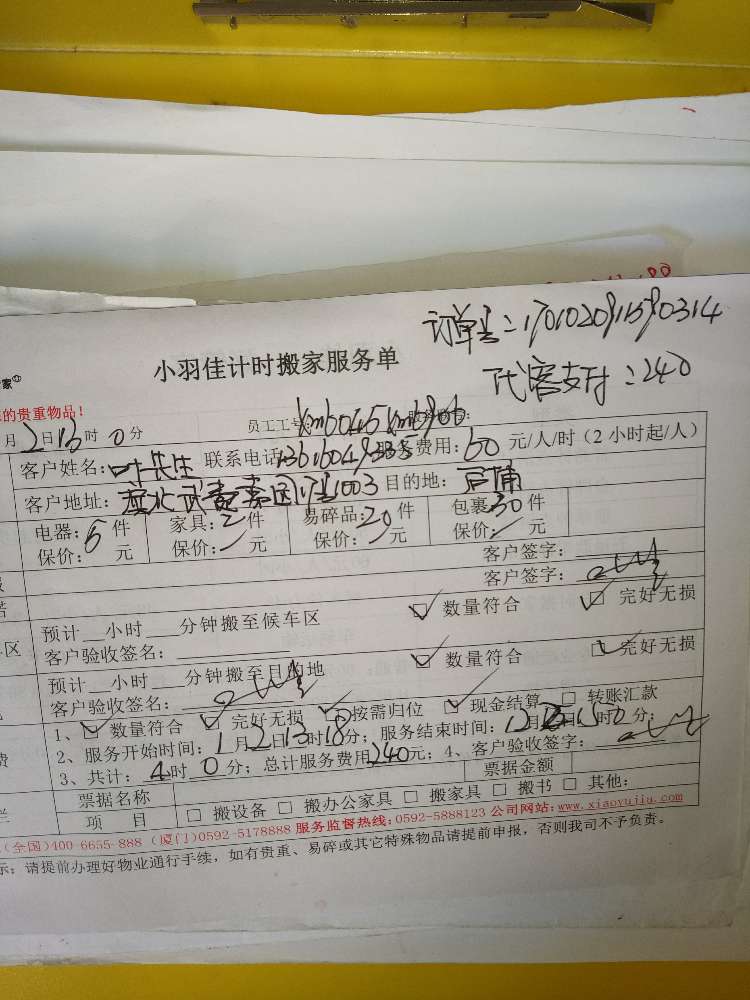 订单号:1701020911590314
小羽佳计时搬家服务单
代客支付:240
家①
的贵重物品!
月2日13时0分 员工工号:
客户姓名:叶先生 联系电话 服务费用:60元/人/时(2小时起/人)
客户地址: 1003 目的地:后埔
电器:5件 家具:2件 易碎品:20件 包裹:30件
保价: 元 保价: 元 保价: 元 保价: 元
客户签字:
客户签字:
预计 小时 分钟搬至候车区 ☑ 数量符合 ☑ 完好无损
客户验收签名:
预计 小时 分钟搬至目的地 ☑ 数量符合 ☑ 完好无损
客户验收签名:
1、☑ 数量符合 ☑ 完好无损 ☑ 按需归位 ☑ 现金结算 □ 转账汇款
2、服务开始时间:1月2日13时18分;服务结束时间: 月 日15时 0分;
3、共计:4时0分;总计服务费用240元;4、客户验收签字:
票据名称 票据金额
项 目 □ 搬设备 □ 搬办公家具 □ 搬家具 □ 搬书 □ 其他:
(全国)400-6655-888 (厦门)0592-5178888 服务监督热线:0592-5888123 公司网站:www.xiaoyujia.com
示:请提前办理好物业通行手续,如有贵重、易碎或其它特殊物品请提前申报,否则我司不予负责。